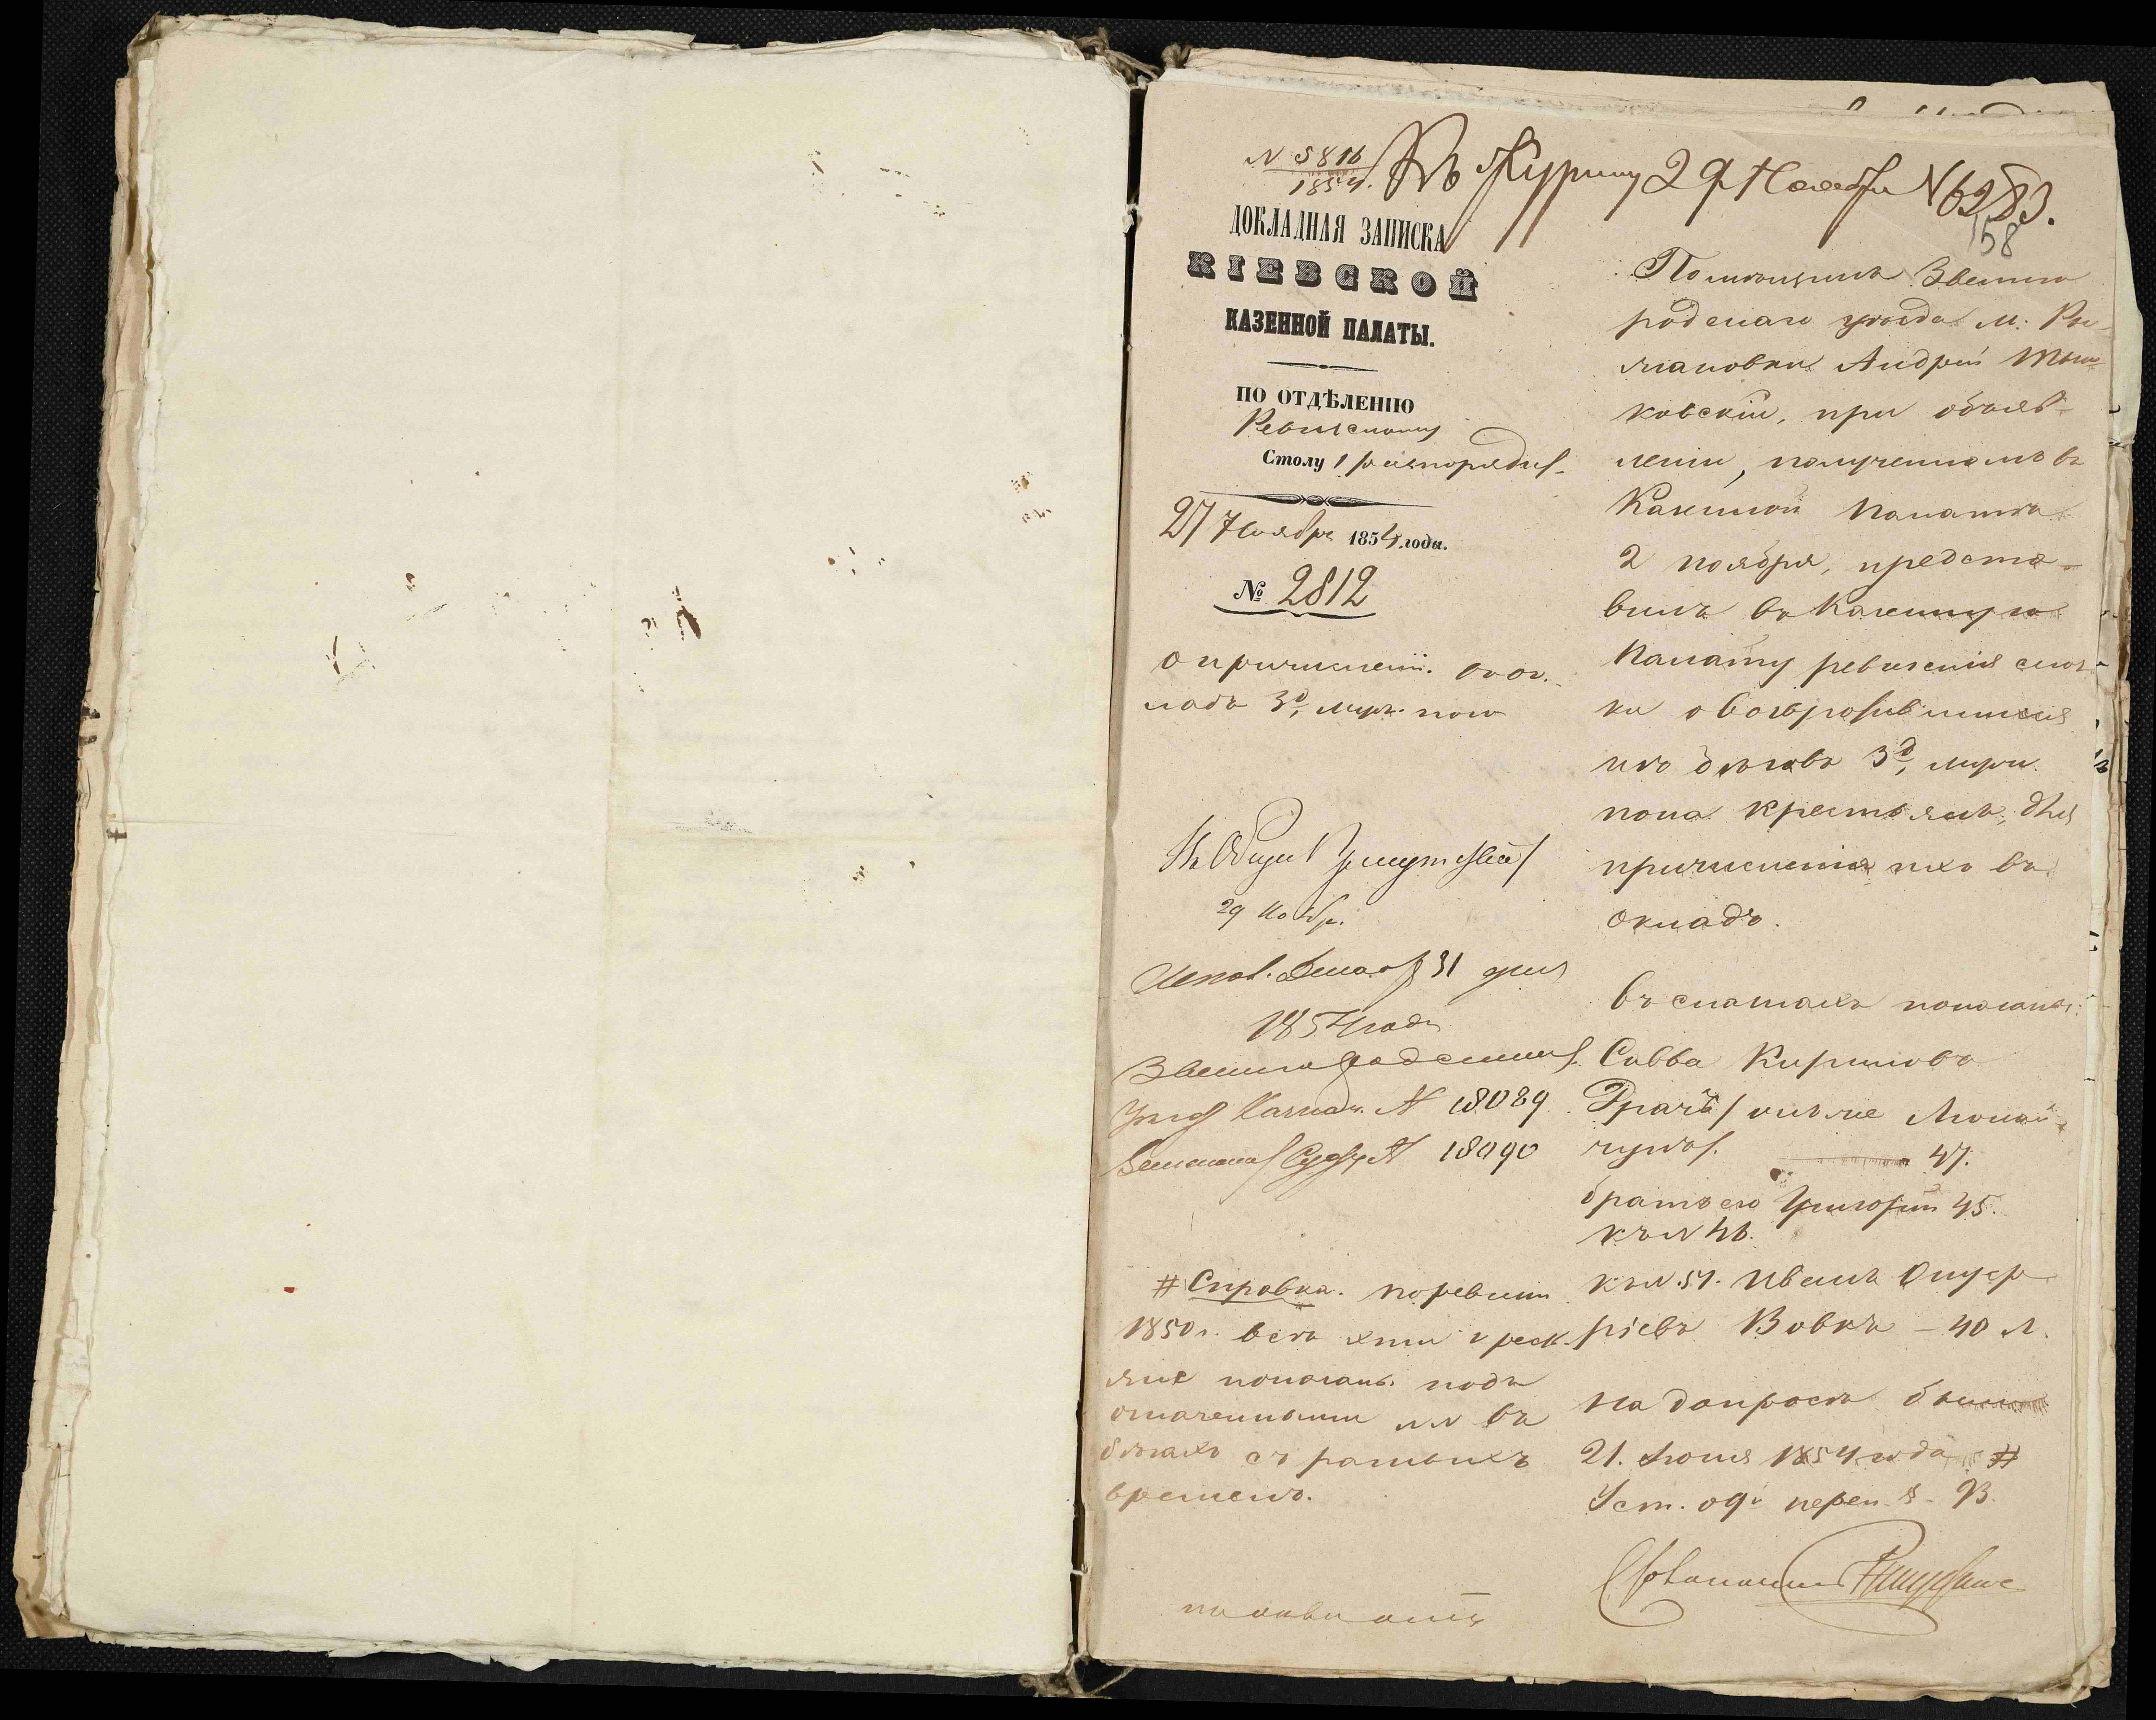 N 5816
1854.
Къ Журналу 29 Ноября N 6283.
158
ДОКЛАДНАЯ ЗАПИСКА
КІЕВСКОЙ
КАЗЕННОЙ ПАЛАТЫ.
ПО ОТДѢЛЕНІЮ
Ревизскому
Столу 1 распорядит.
27 Ноября 1854 года.
№ 2812
о причислении въ ок-
ладъ 3 д, муж. пола
29 Ноябр.
Испол. 31 дня
1854 года
Звенигородскому
Уезд Казнач. N 18089
Земскому Суду N 18090
# Справка. по ревизіи
1850 г. всѣ эти крест-
яне показаны подъ
означенными NN въ
бѣгахъ съ разныхъ
временъ.
Помѣщикъ Звениго
родскаго уѣзда м: Ры-
жановки Андрей Тыш-
ковскій, при объяв-
леніи, полученномъ въ
Казенной Палатѣ
2 ноября, предста-
вилъ въ Казенную
Палату ревизскія сказ-
ки о возвратившихся
изъ бѣговъ 3 д, муж.
пола крестьянъ, для
причисленія ихъ въ
окладъ.
въ сказкахъ показаны:
Савва Кириловъ
47.
братъ его Григорій 45.
къ N 46.
къ N 51. Иванъ Онуф-
ріевъ Вовкъ — 40 л.
На допросѣ были
21. Іюня 1854 года #
Уст. о 9й переп. § 93.